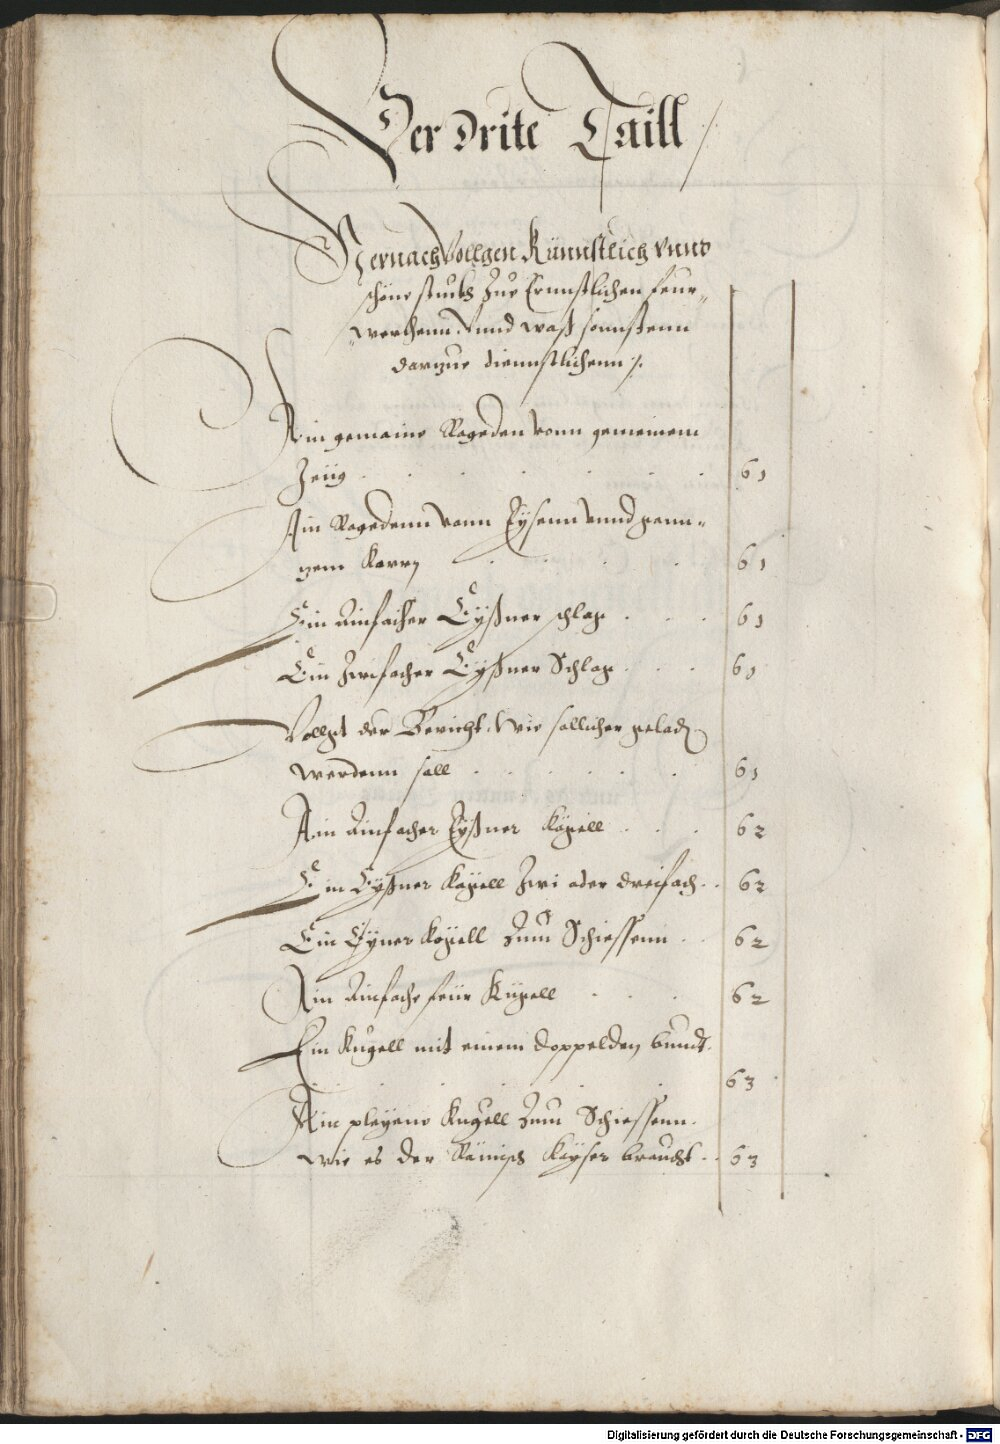 Der drite Taill /
Hernach Vollgen Künnstlich vnnd
schöne stuckh zue Ernnstlichen feur„
„werchenn. Vnnd waß sonnstenn
darzue diennstlichenn /.
Ain gemaine Rageden vonn gemeinem
Zeüg . . . . . . . 61
Ain Ragedenn vonn Eysenn vnnd gann„
zem Karrn . . . . 61
Ein Ainfacher Eyßner schlag . . . 61
Ein Zwifacher Eyßner Schlag . . . 61
Vollgt der Bericht. Wie sollicher geladn
werdenn soll . . . . . 61
Ain Ainfacher Eyßner Kügell . . . 62
Ein Eyßner Kugell Zwi oder dreifach . . 62
Ein Eyner Kugell Zum Schiessenn . . 62
Ain Ainfache feür Kügell . . . 62
Ein Kugell mit einem doppelden bundt .
. . . . . 63
Ain pleyene Kugell Zum Schiessenn .
wie es der Römisch Kayser braucht . . 63
Digitalisierung gefördert durch die Deutsche Forschungsgemeinschaft - DFG